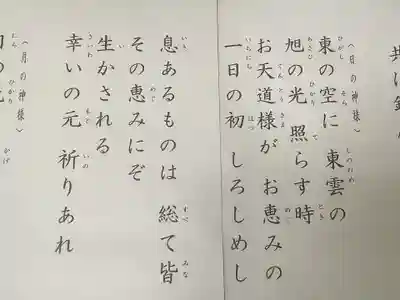 共に
〈日の神様〉
東の空に 東雲の
旭の光 照らす時
お天道様が お恵みの
一日の初 しろしめし
息あるものは 総て皆
その恵みにぞ
生かされる
幸いの元 祈りあれ
〈月の神様〉